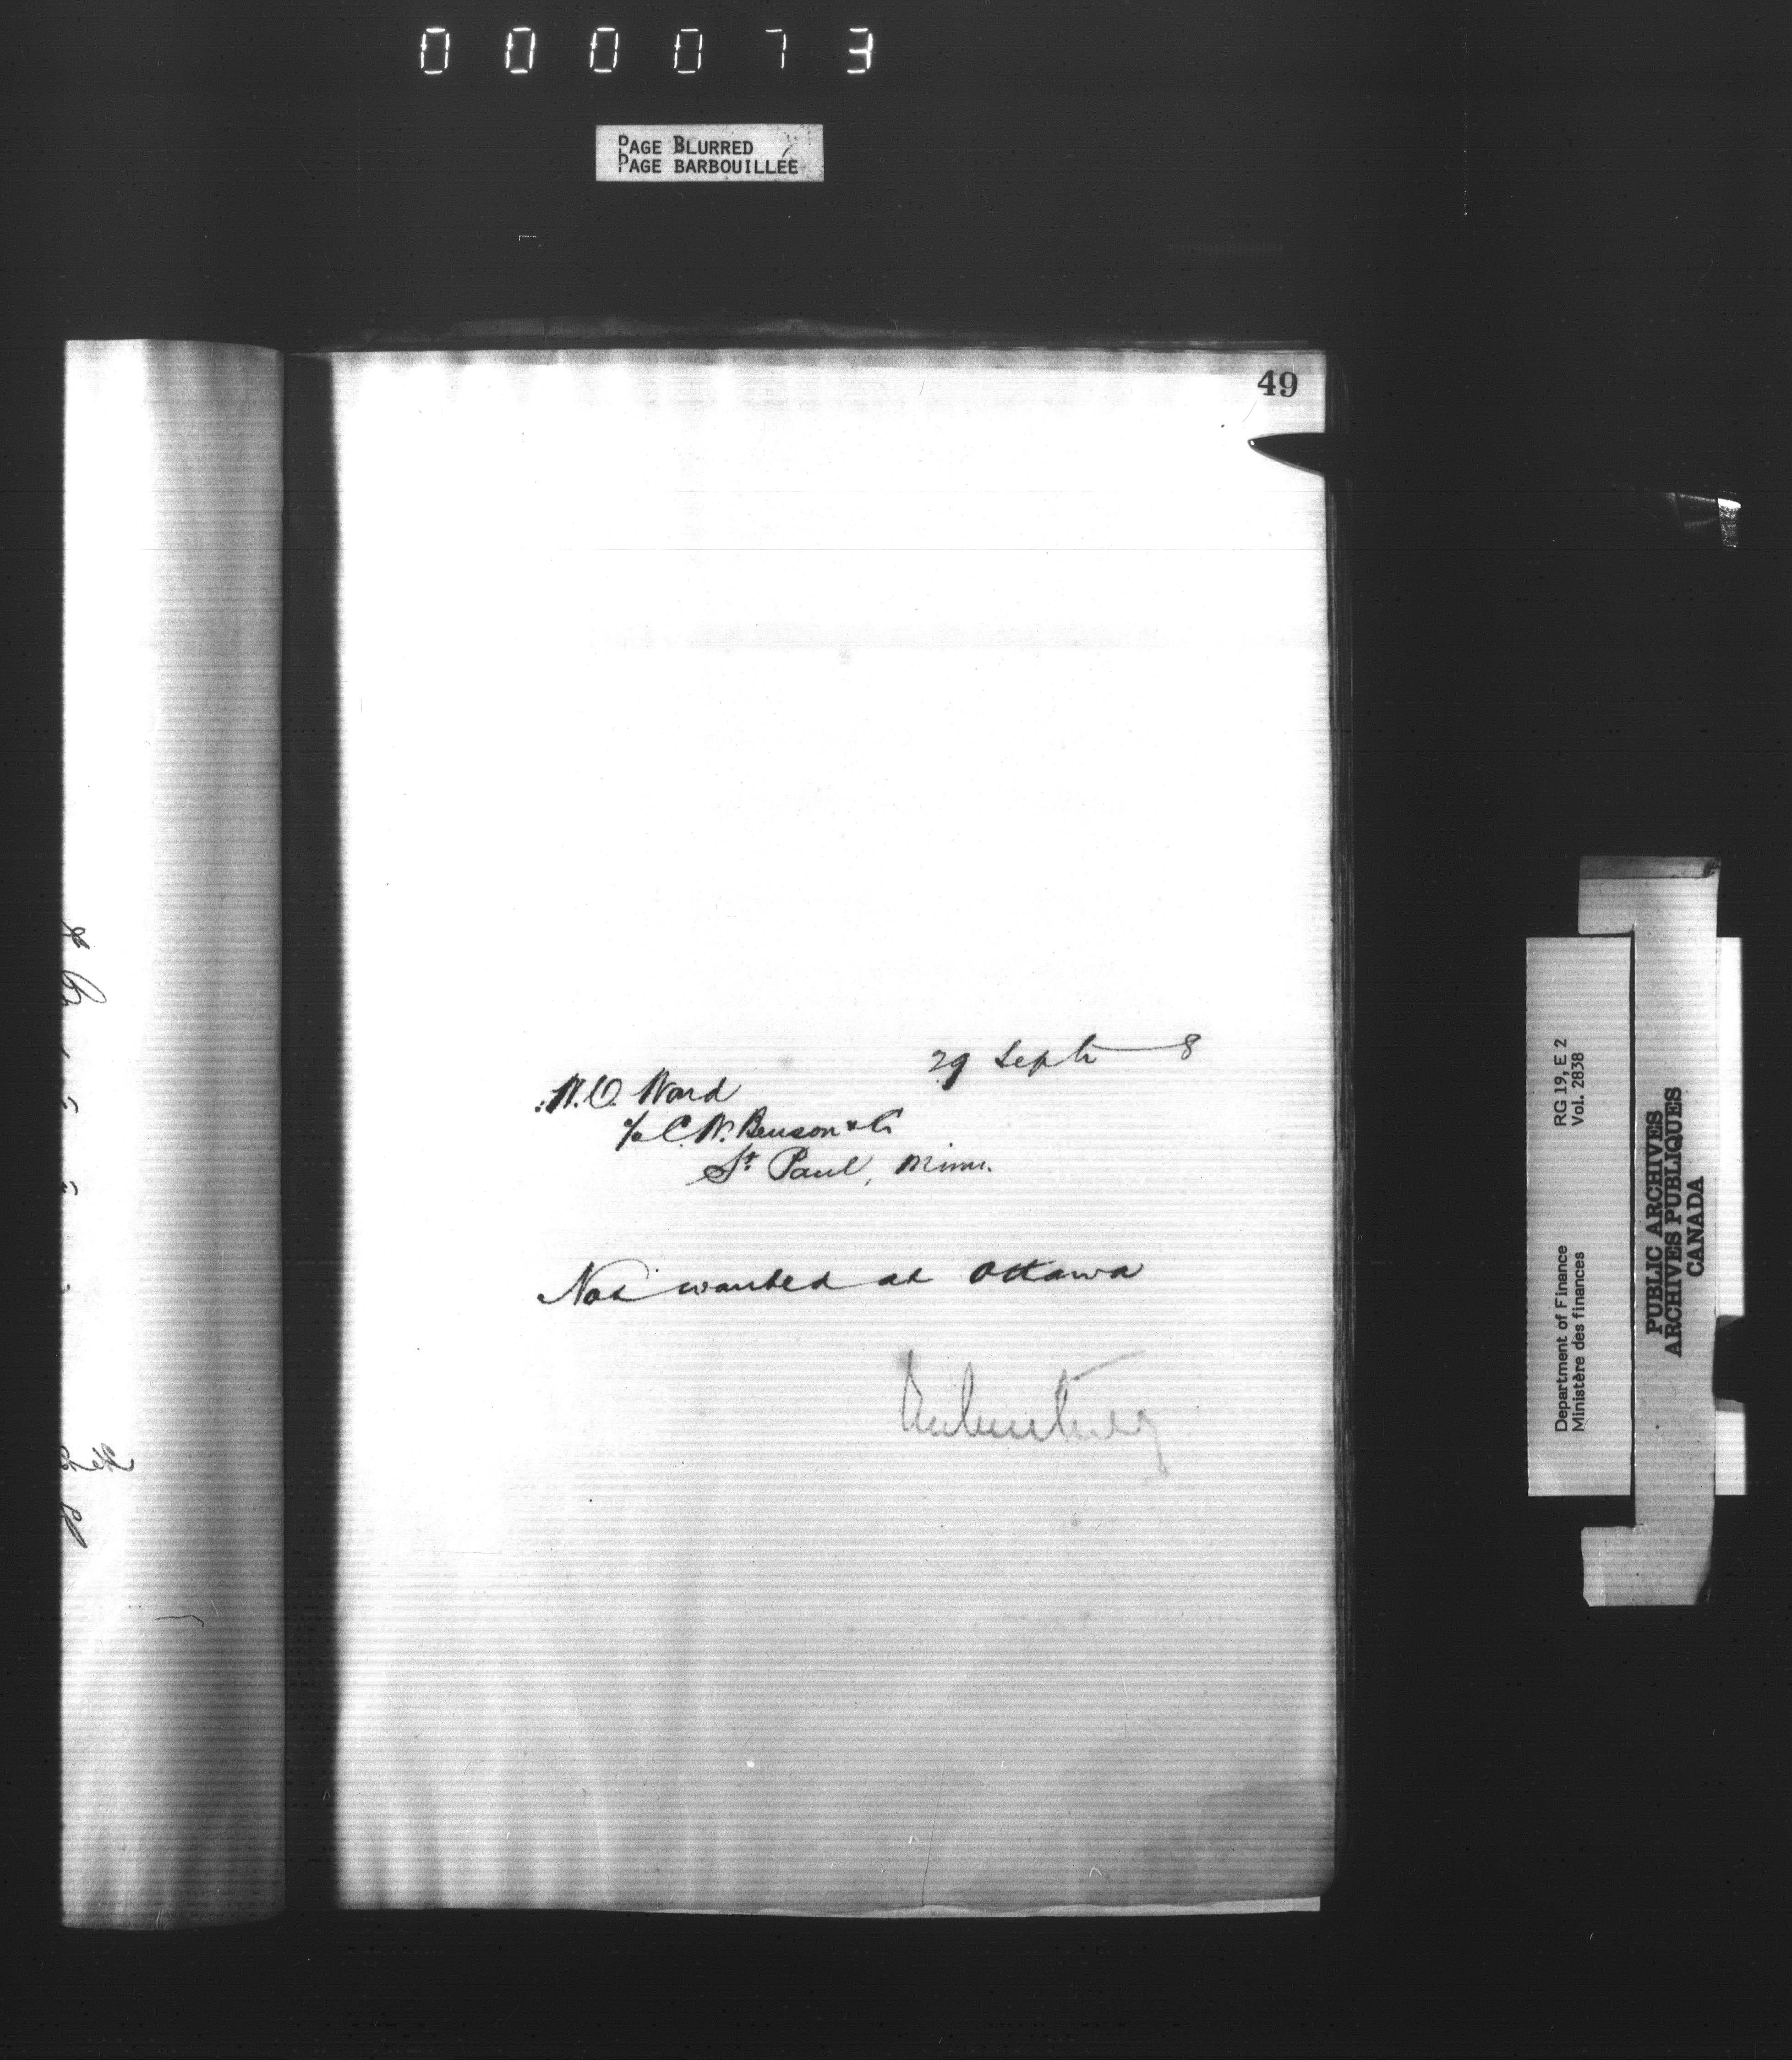 000073
PAGE BLURRED
PAGE BARBOUILLÉE
49
29 Sept 8
W.O. Ward
c/o C.W. Benson & Co
St Paul, Minn.
Not wanted at Ottawa
RG 19, E 2
Vol. 2838
Department of Finance
Ministère des finances
PUBLIC ARCHIVES
ARCHIVES PUBLIQUES
CANADA